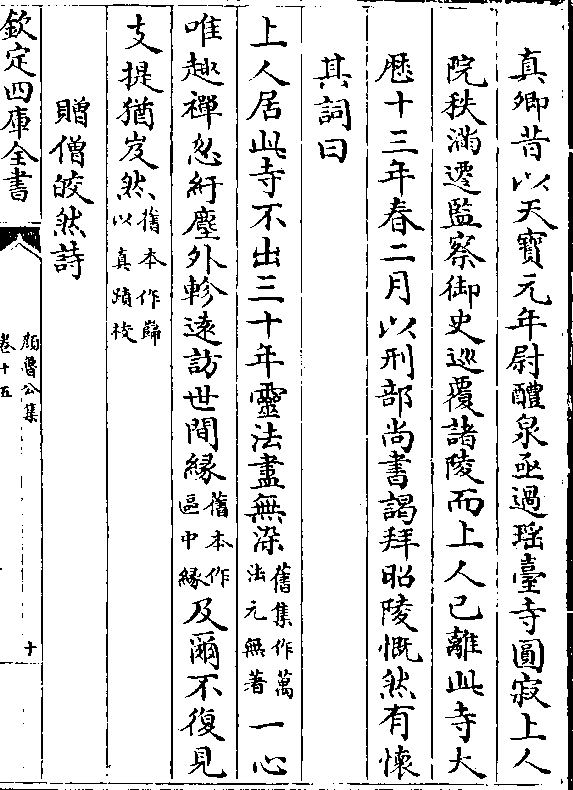 真卿昔以天寶元年尉醴泉亟過瑶臺寺圓寂上人
院秩滿遷監察御史巡覆諸陵而上人已離此寺大
厯十三年春二月以刑部尚書謁拜昭陵慨然有懷
其詞曰
上人居此寺不出三十年靈法盡無染舊集作萬法元無著一心
唯趣禪忽紆塵外軫遠訪世間緣舊本作區中緣及爾不復見
支提猶岌然舊本作巋以真蹟校
贈僧皎然詩
欽定四庫全書
顔魯公集
卷十五
十